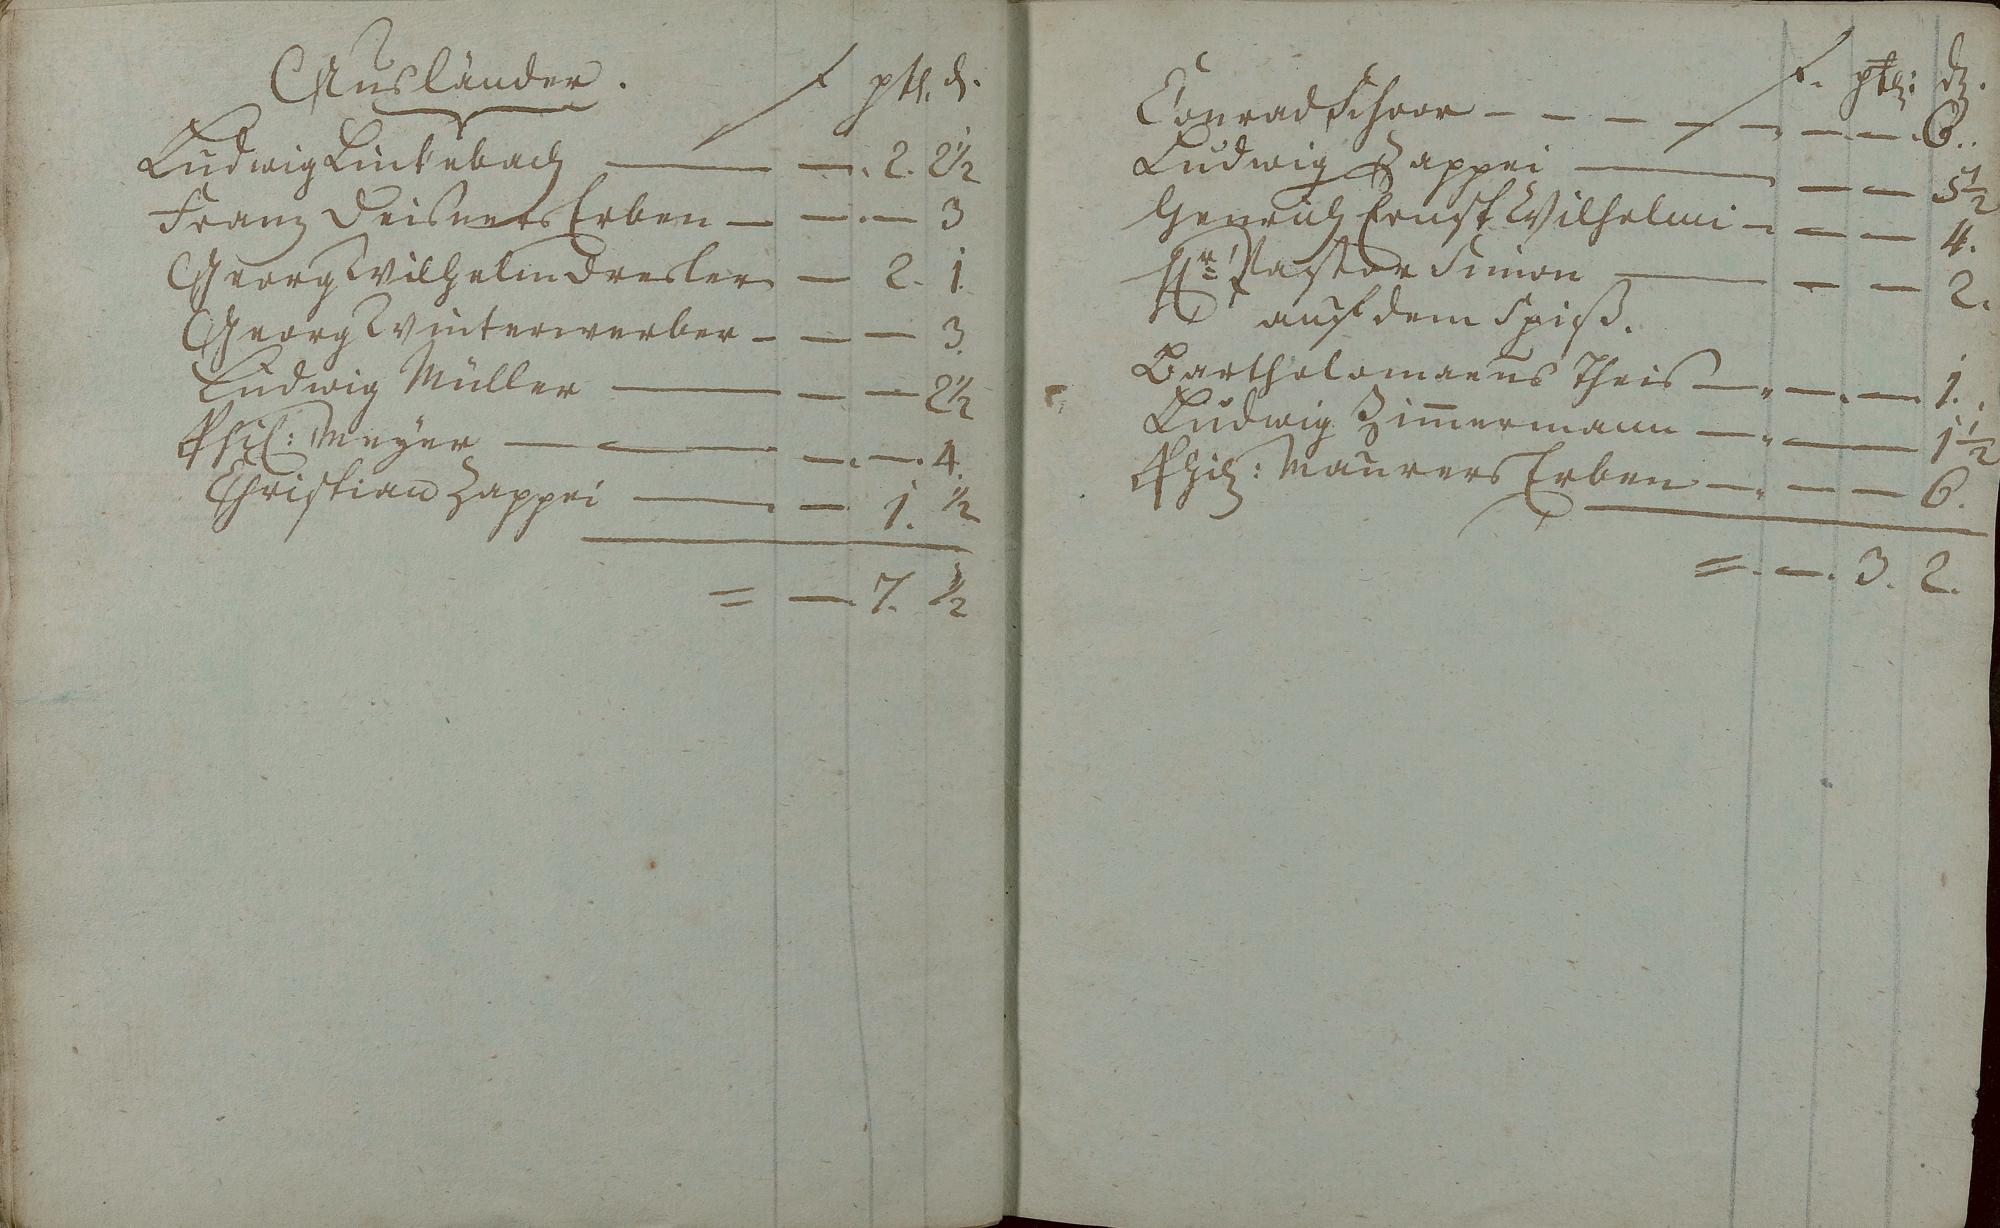 Ausländer. f ptl. d.
Ludwig Linckebach — —. 2. 2½
Franz Deisners Erben — —.— 3
Georg Wilhelm Dresler — 2. 1.
Georg Winterwerber - — — 3.
Ludwig Müller — — — 2½
Phil: Meyer — — —.—. 4.
Christian Zappei — — 1. ½
= —. 7. ½
f. ptl: d.
Conrad Schoor - - - - - - — —. 6..
Ludwig Zappei — — — 5½
Henrich Ernst Wilhelmi - — — 4.
Hr. Pastor Simon — — — 2.
auf dem Spiß.
Bartholomaeus Theis — —.—. 1.
Ludwig Zim̅ermann — — 1½
Phil: Maurers Erben — — — 6.
= —. 3. 2.